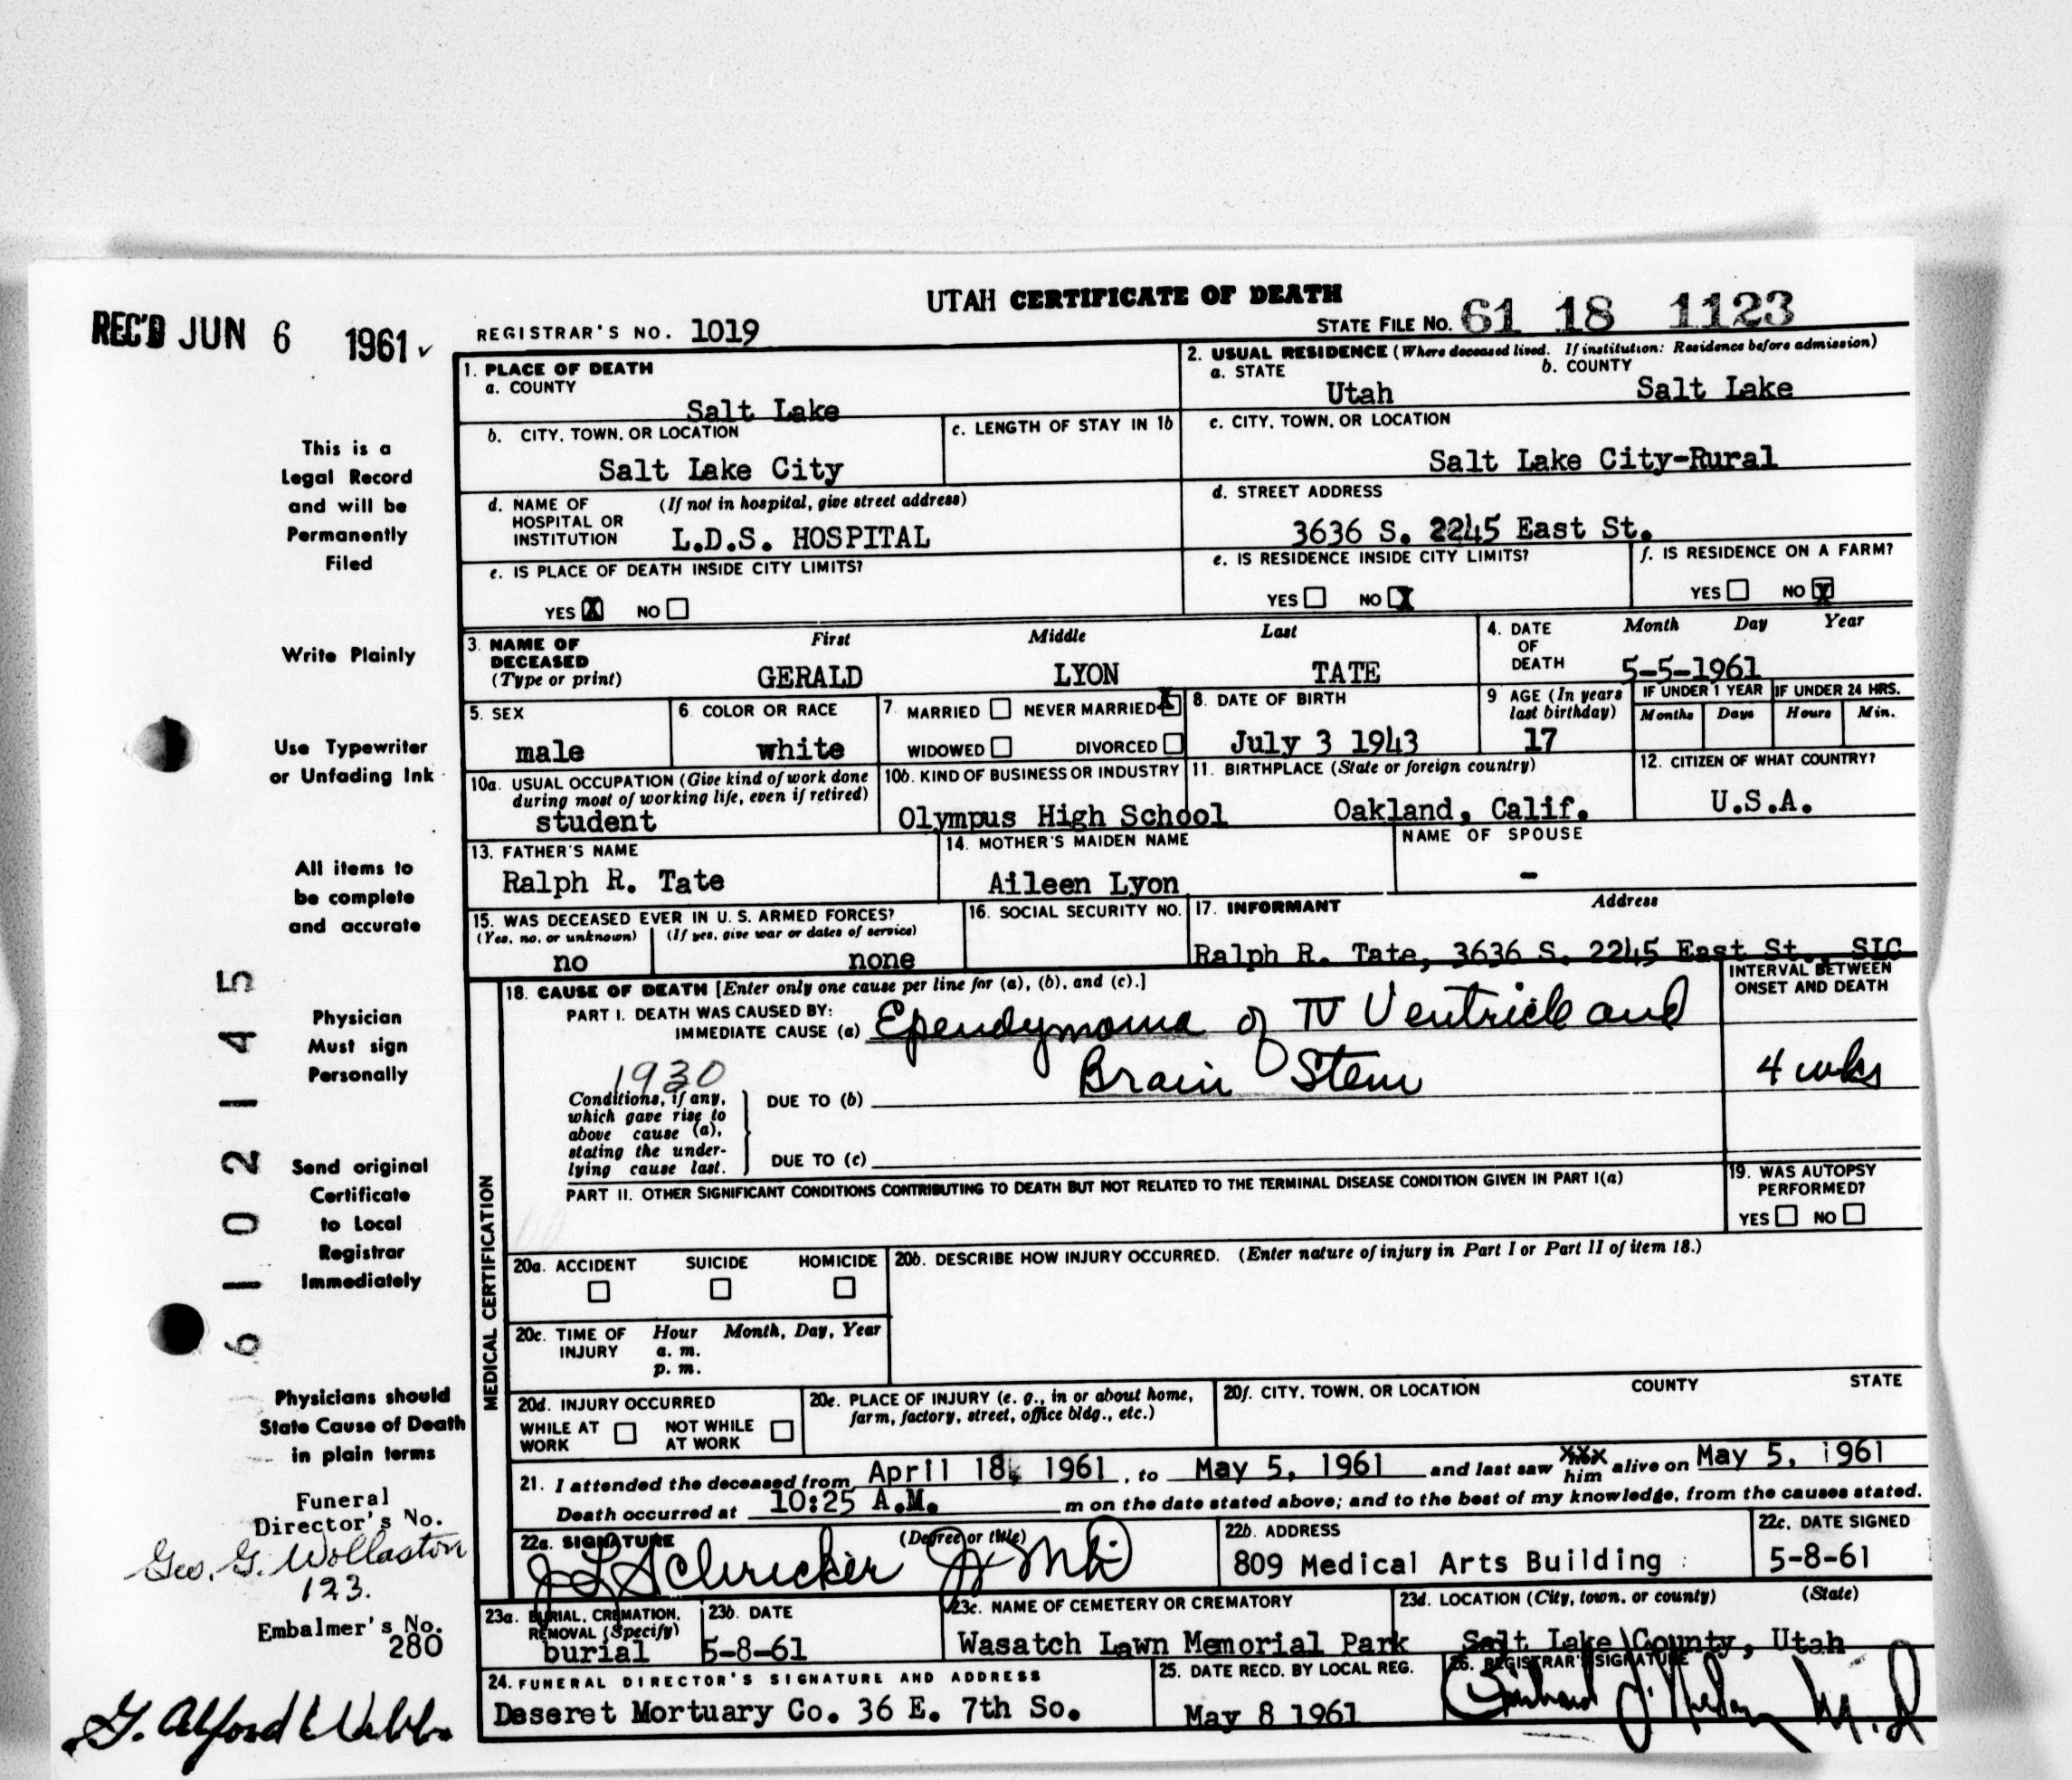 UTAH CERTIFICATE OF DEATH
REC'D JUN 6 1961
REGISTRAR'S NO. 1019
STATE FILE NO. 61 18 1123
1. PLACE OF DEATH
a. COUNTY
Salt Lake
2. USUAL RESIDENCE (Where deceased lived. If institution: Residence before admission)
a. STATE
Utah
b. COUNTY
Salt Lake
b. CITY, TOWN, OR LOCATION
Salt Lake City
c. LENGTH OF STAY IN 1b
c. CITY, TOWN, OR LOCATION
Salt Lake City-Rural
d. NAME OF HOSPITAL OR INSTITUTION
(If not in hospital, give street address)
L.D.S. HOSPITAL
d. STREET ADDRESS
3636 S. 2245 East St.
e. IS PLACE OF DEATH INSIDE CITY LIMITS?
YES X NO
e. IS RESIDENCE INSIDE CITY LIMITS?
YES NO X
f. IS RESIDENCE ON A FARM?
YES NO X
3. NAME OF DECEASED (Type or print)
First Middle Last
GERALD LYON TATE
4. DATE OF DEATH
Month Day Year
5-5-1961
5. SEX
male
6. COLOR OR RACE
white
7. MARRIED NEVER MARRIED X
WIDOWED DIVORCED
8. DATE OF BIRTH
July 3 1943
9 AGE (In years last birthday)
17
IF UNDER 1 YEAR
Months Days
IF UNDER 24 HRS.
Hours Min.
10a. USUAL OCCUPATION (Give kind of work done during most of working life, even if retired)
student
10b. KIND OF BUSINESS OR INDUSTRY
Olympus High School
11. BIRTHPLACE (State or foreign country)
Oakland, Calif.
12. CITIZEN OF WHAT COUNTRY?
U.S.A.
13. FATHER'S NAME
Ralph R. Tate
14. MOTHER'S MAIDEN NAME
Aileen Lyon
NAME OF SPOUSE
-
15. WAS DECEASED EVER IN U. S. ARMED FORCES?
(Yes, no, or unknown) (If yes, give war or dates of service)
no none
16. SOCIAL SECURITY NO.
17. INFORMANT Address
Ralph R. Tate, 3636 S. 2245 East St., SLC
MEDICAL CERTIFICATION
18. CAUSE OF DEATH [Enter only one cause per line for (a), (b), and (c).]
PART I. DEATH WAS CAUSED BY:
IMMEDIATE CAUSE (a) Ependymoma of IV Ventricle and
Brain Stem
INTERVAL BETWEEN ONSET AND DEATH
4 wks
1930
Conditions, if any, which gave rise to above cause (a), stating the underlying cause last.
DUE TO (b)
DUE TO (c)
PART II. OTHER SIGNIFICANT CONDITIONS CONTRIBUTING TO DEATH BUT NOT RELATED TO THE TERMINAL DISEASE CONDITION GIVEN IN PART I(a)
19. WAS AUTOPSY PERFORMED?
YES NO
20a. ACCIDENT SUICIDE HOMICIDE
20b. DESCRIBE HOW INJURY OCCURRED. (Enter nature of injury in Part I or Part II of item 18.)
20c. TIME OF INJURY
Hour Month, Day, Year
a. m.
p. m.
20d. INJURY OCCURRED
WHILE AT WORK NOT WHILE AT WORK
20e. PLACE OF INJURY (e. g., in or about home, farm, factory, street, office bldg., etc.)
20f. CITY, TOWN, OR LOCATION COUNTY STATE
21. I attended the deceased from April 18, 1961, to May 5, 1961 and last saw xxx him alive on May 5, 1961
Death occurred at 10:25 A.M. m on the date stated above; and to the best of my knowledge, from the causes stated.
22a. SIGNATURE (Degree or title)
J L Schricker Jr MD
22b. ADDRESS
809 Medical Arts Building
22c. DATE SIGNED
5-8-61
23a. BURIAL, CREMATION, REMOVAL (Specify)
burial
23b. DATE
5-8-61
23c. NAME OF CEMETERY OR CREMATORY
Wasatch Lawn Memorial Park
23d. LOCATION (City, town, or county) (State)
Salt Lake County, Utah
24. FUNERAL DIRECTOR'S SIGNATURE AND ADDRESS
Deseret Mortuary Co. 36 E. 7th So.
25. DATE RECD. BY LOCAL REG.
May 8 1961
26. REGISTRAR'S SIGNATURE
M.D
This is a
Legal Record
and will be
Permanently
Filed
Write Plainly
Use Typewriter
or Unfading Ink
All items to
be complete
and accurate
Physician
Must sign
Personally
Send original
Certificate
to Local
Registrar
Immediately
Physicians should
State Cause of Death
in plain terms
Funeral
Director's No.
Geo. G. Wollaston
123.
Embalmer's No.
280
G. Alford Webb
61 02145